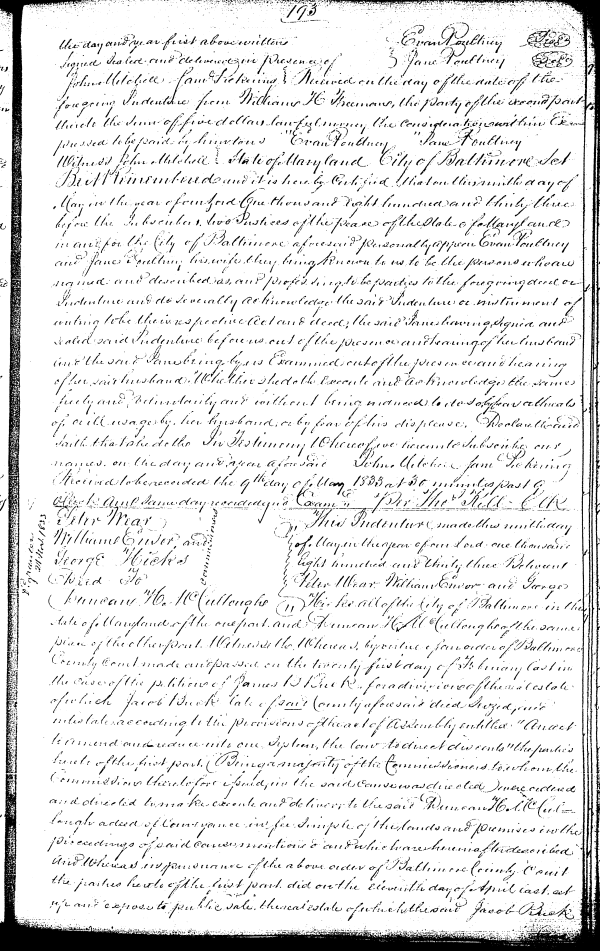 193
the day and year first above written Evan Poultney Seal
Signed Sealed and delivered in presence of Jane Poultney Seal
John Mitchell Sam Pickering Received on the day of the date of the
foregoing Indenture from William H Freeman, the party of the second part
therein the sum of five dollars lawful money the consideration within Ex
pressed to be paid by him to us "Evan Poultney "Jane Poultney
Witness John Mitchell State of Maryland City of Baltimore Sct
Be it Remembered and it is hereby Certified that on this ninth day of
May in the year of our Lord One thousand eight hundred and thirty three
before the Subscribers, two Justices of the peace of the State of Maryland
in and for the City of Baltimore aforesaid personally appear Evan Poultney
and Jane Poultney his wife they being known to us to be the persons who are
named and described as, and professing to be parties to the foregoing deed or
Indenture and do severally acknowledge the said Indenture or instrument of
writing to be their respective Act and deed; the said Jane having signed and
sealed said Indenture before us out of the presence and hearing of her husband
and the said Jane being by us Examined out of the presence and hearing
of her said husband Whether she doth Execute and acknowledge the same
freely and voluntarily and without being induced to do so by fear or threats
of ill usage by her husband or by fear of his displeasure, Declareth and
saith that she doth In Testimony Whereof we hereunto Subscribe our
names on the day and year aforesaid John Mitchell Sam Pickering
Received to be recorded the 9th day of May 1833 at 30 minutes past 9
Oclock AM same day recorded and Exam'd Per Thos Kell Clk
Peter Wear This Indenture made this ninth day
William Ensor and of May in the year of our Lord one thousand
George Hicks commissioners eight hundred and thirty three Between
Deed To Peter Wear William Ensor and George
Duncan H. McCullough Hicks all of the City of Baltimore in the
state of Maryland of the one part and Duncan H. McCullough of the same
place of the other part. Witnesseth, Whereas, by virtue of an order of Baltimore
County Court made and passed on the twenty first day of February last in
the case of the petition of James B Buck for a division of the real estate
of which Jacob Buck late of said County aforesaid died seized, and
intestate according to the provisions of the act of Assembly entitled "An act
to amend and reduce into one System, the law to direct descents" the parties
hereto of the first part, (Being a majority of the Commissioners to whom the
Commission theretofore issued, in the said cause was directed) were ordered
and directed to make execute and deliver to the said Duncan H. McCul-
lough a deed of Conveyance in fee simple of the lands and premises in the
proceedings of said cause mentioned and which are herein after described
And Whereas in pursuance of the above order of Baltimore County Court
the parties hereto of the first part did on the eleventh day of April last, set
up and expose to public sale, the real estate of which the said Jacob Buck